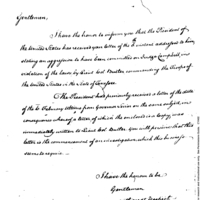 Gentlemen,
I have the honor to inform you that the President of
the United States has received your letter of the instant addressed to him,
stating an aggression to have been committed on Judge Campbell, in
violation of the laws by Lieut Col. Butler commanding the troops of
the United States in the State of Tennessee.
The President had previously received a letter of the date
of the February setting from Governor on the same subject, in
consequence whereof a letter of which the enclosed is a copy, was
immediately written to Lieut Col. Butler. You will perceive that this
letter is the commencement of an investigation which this business
seems to require.
I have the honor to be
Gentlemen